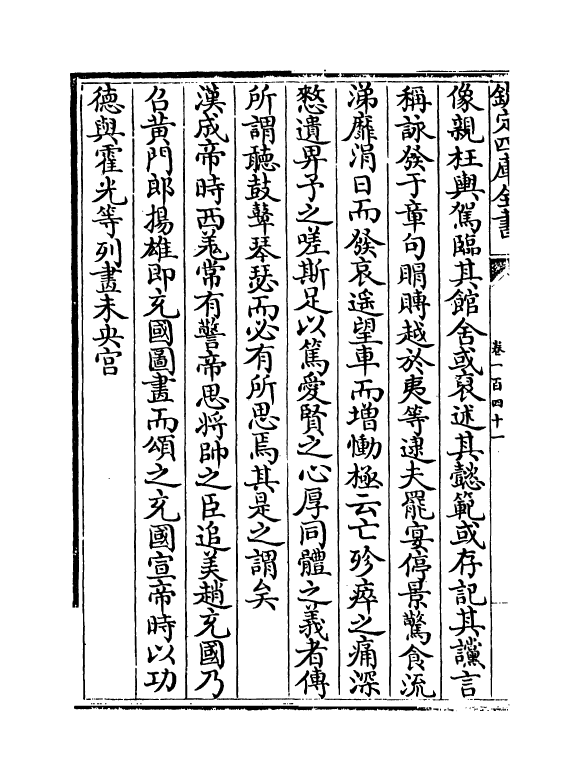 欽定四庫全書
卷一百四十一
像親枉輿駕臨其館舍或裒述其懿範或存記其讜言
稱詠發于章句賵賻越於夷等逮夫罷宴停景驚食流
涕靡涓日而發哀遥望車而增慟極云亡殄瘁之痛深
慭遺畀予之嗟斯足以篤愛賢之心厚同體之義者傳
所謂聽鼓鼙琴瑟而必有所思焉其是之謂矣
漢成帝時西羗常有警帝思將帥之臣追美趙充國乃
召黄門郎揚雄即充國圖畫而頌之充國宣帝時以功
德與霍光等列畫未央宫